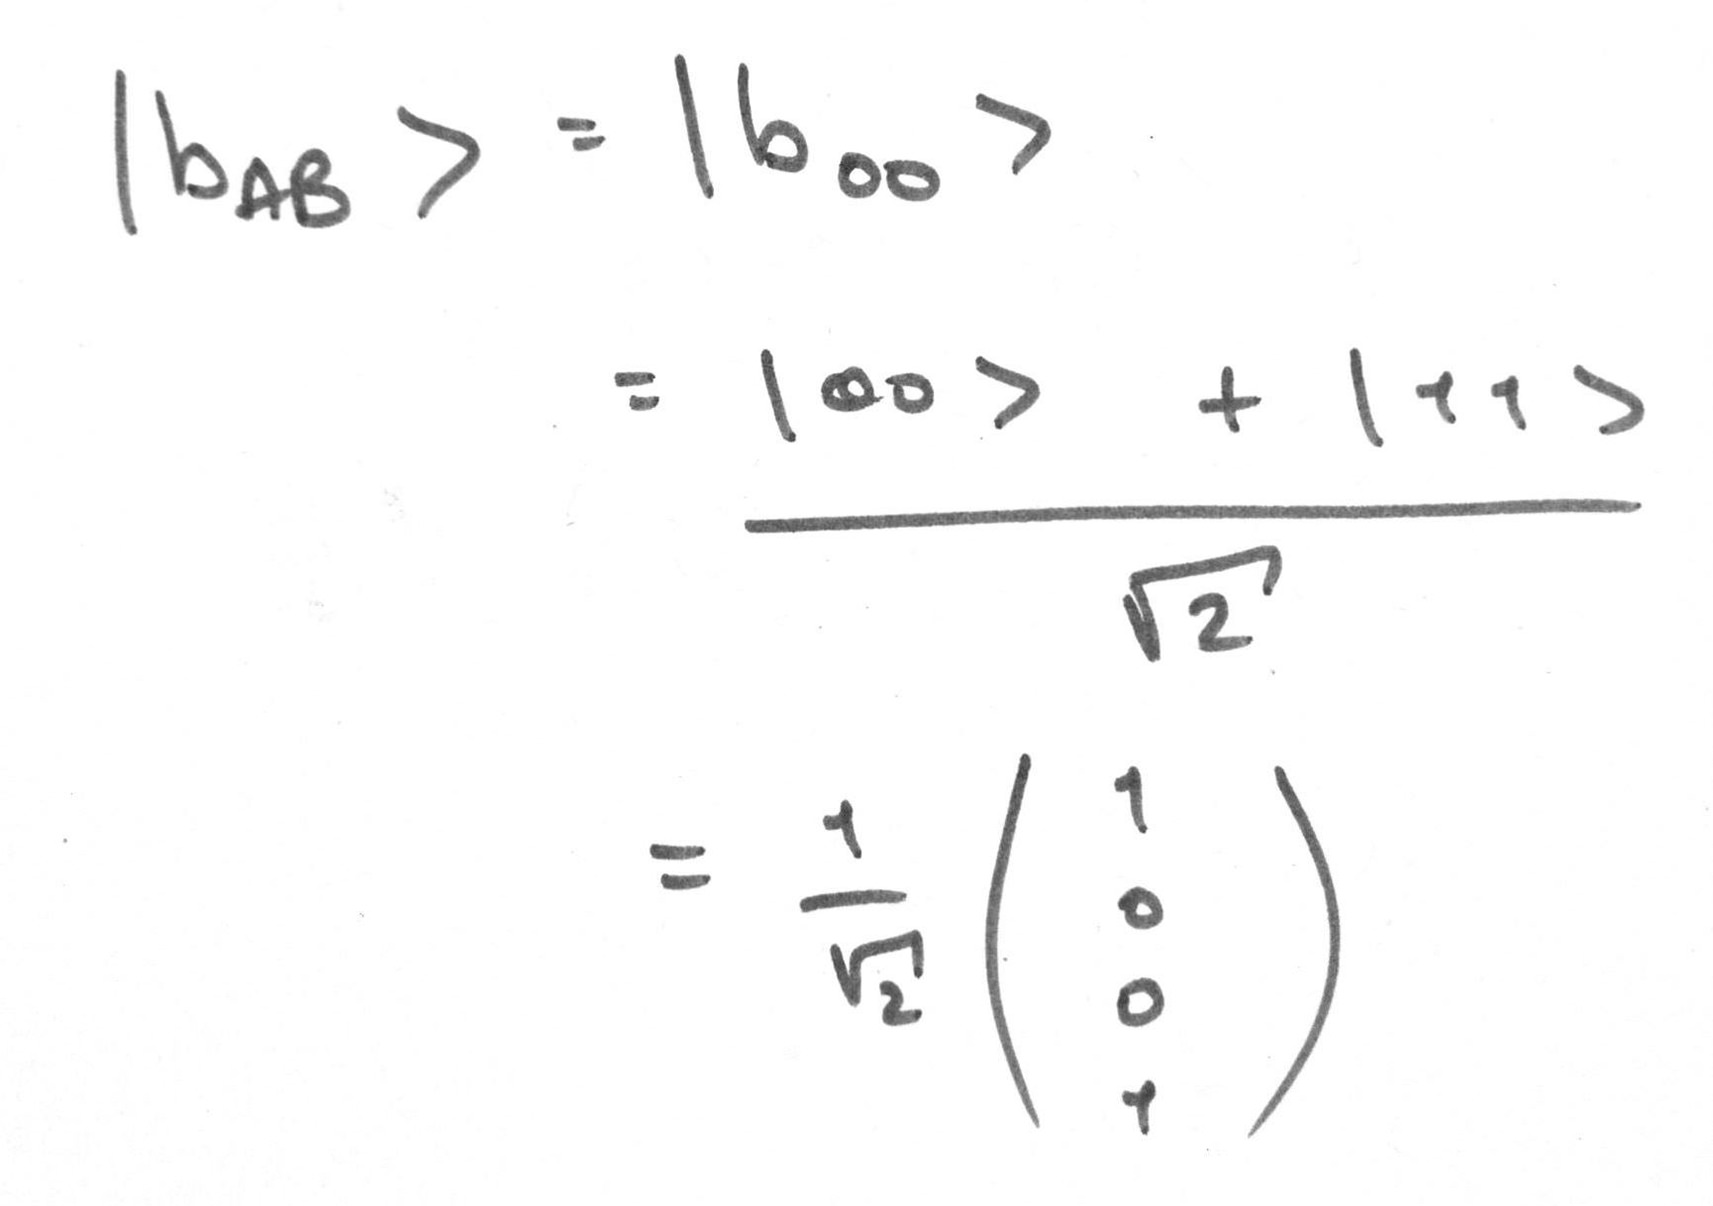 |b_AB> = |b_00>
= |00> + |11>
√2
= 1/√2 (1
0
0
1)